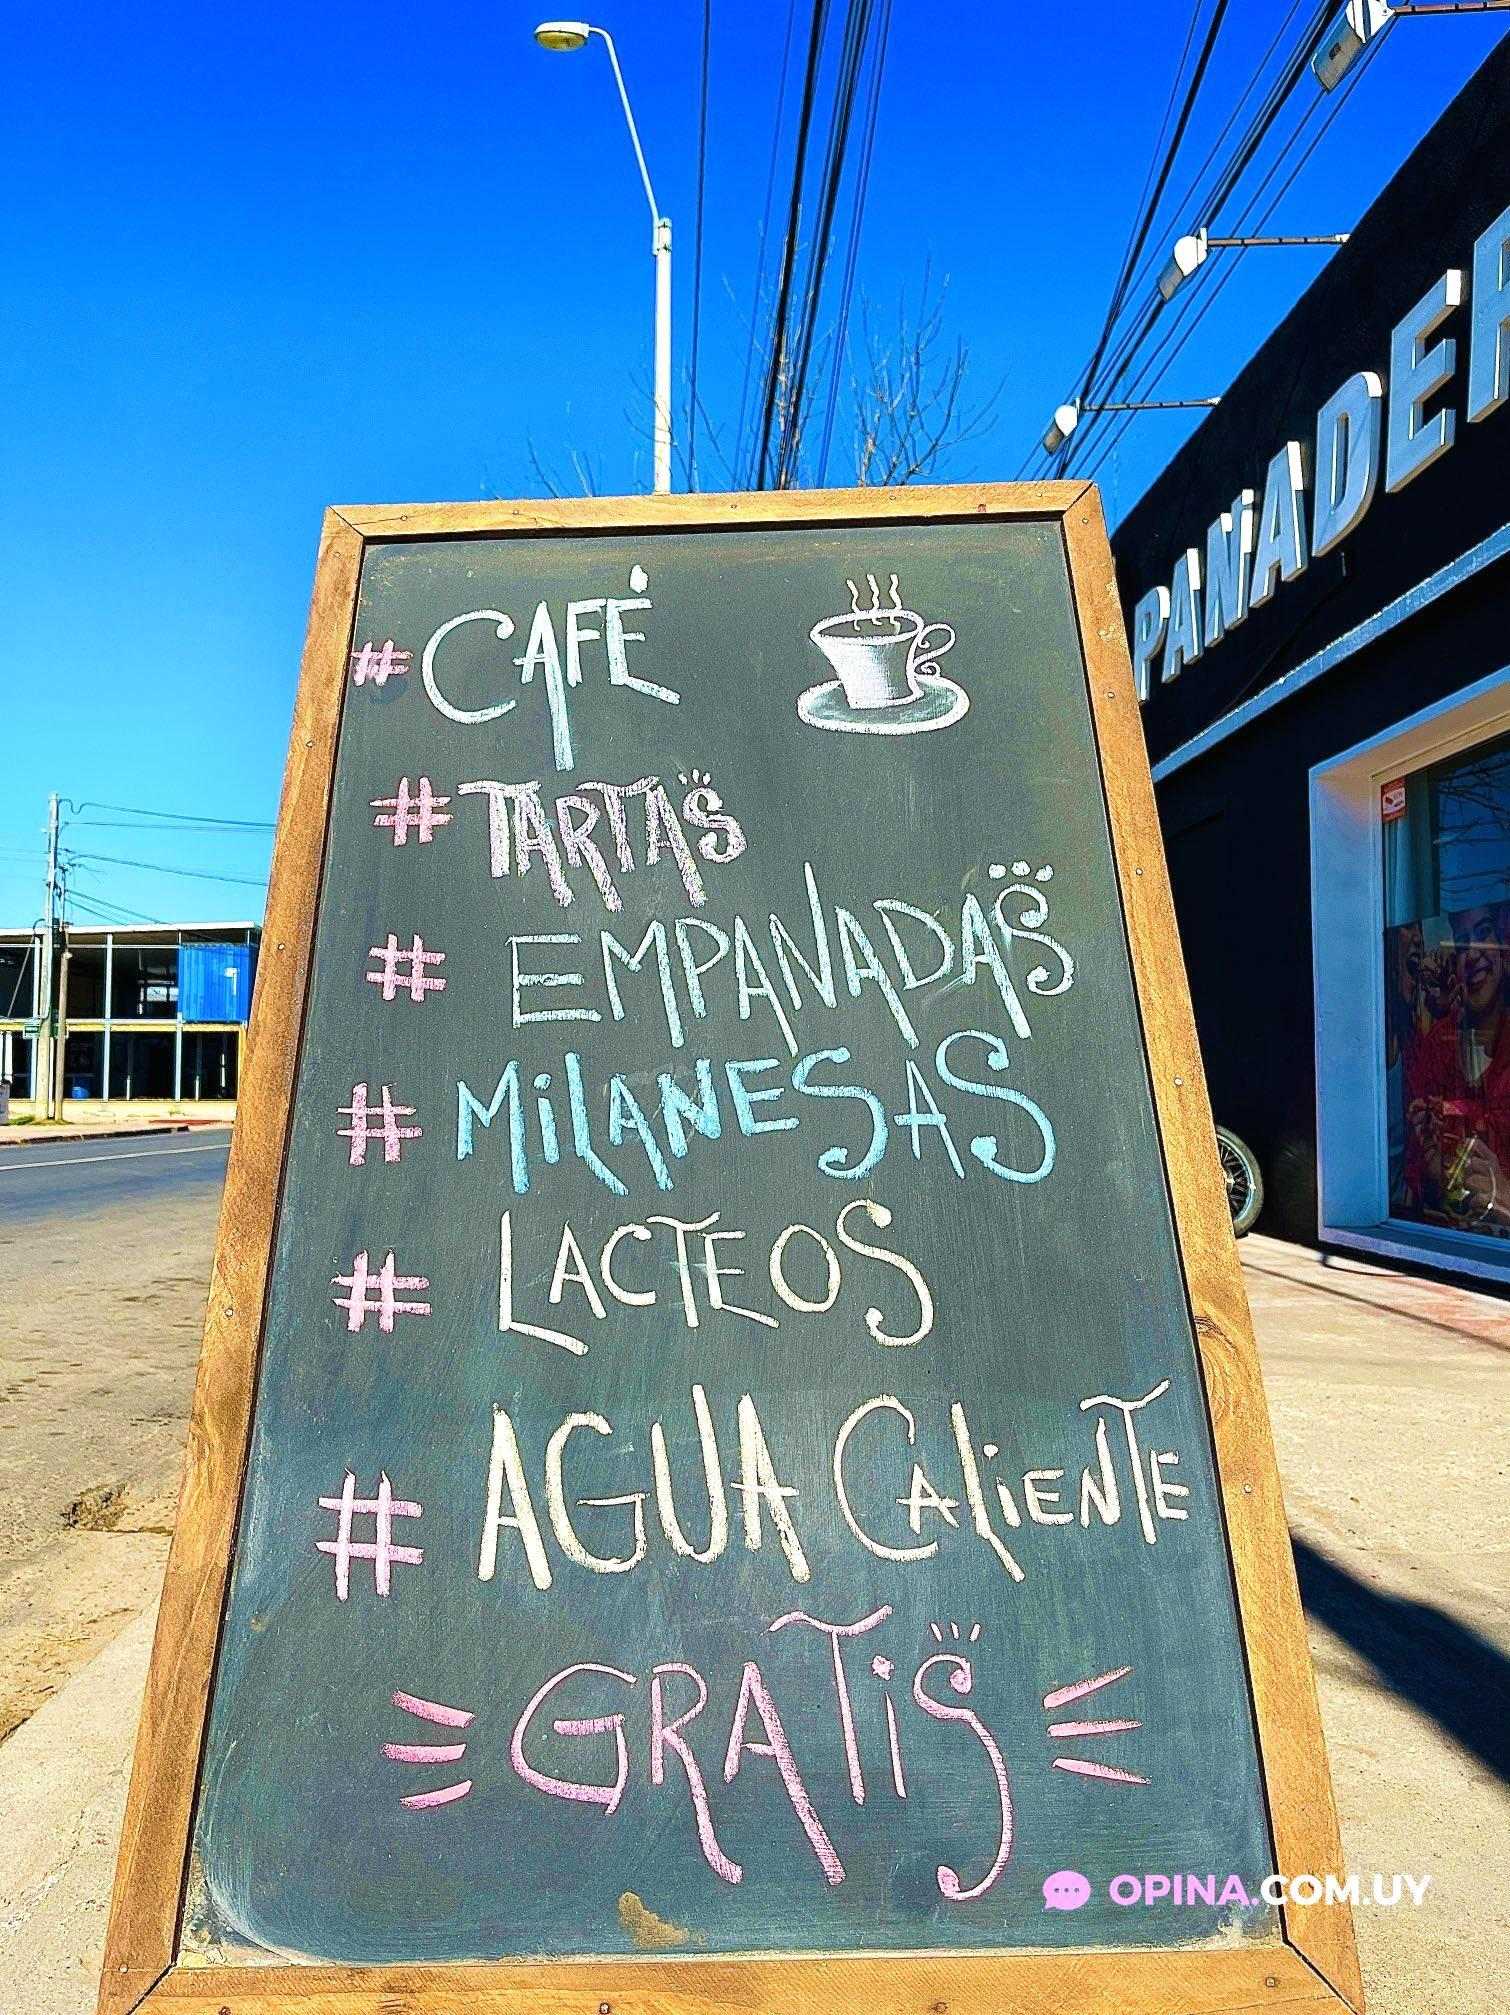 PANADER
# CAFÉ
# TARTAS
# EMPANADAS
# MILANESAS
# LACTEOS
# AGUA CALIENTE
GRATIS
OPINA.COM.UY